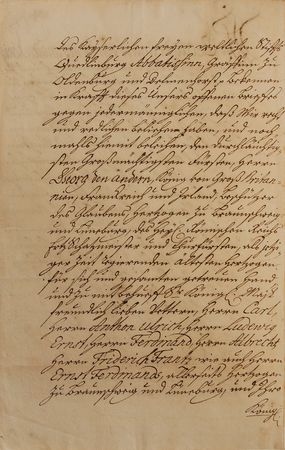 des Kayserlichen freyen weltlichen Stiffts
Quedlinburg Abbatissinn, Gräffinn zu
Oldenburg und Delmenhorst bekennen
in Krafft dieses Unsers offenen Briefes
gegen jedermänniglichen, daß Wir recht
und redlichen beliehen haben, und noch
mahls hiemit beleihen, den durchläuchtig
sten Großmächtigsten Fürsten, Herrn
Georg den andern, König von Groß Britan
nien, Franckreich und Irland, Beschützer
des Glaubens, Hertzogen zu Braunschweig
und Lüneburg, des Heyl. Römischen Reichs
Ertz Schatzmeister und Churfürsten, als
Zeit regierenden ältesten Hertzogen
für sich und gesamter getreuen Hand
und zu mit behueff Sr. Königl. Majt.
freundlich lieben Vettern, Herrn Carl,
Herrn Anthon Ulrich, Herrn Ludewig
Ernst, Herrn Ferdinand, Herrn Albrecht
Herrn Friderich Frantz wie auch Herrn
Ernst Ferdinands, allerseits Hertzogen
zu Braunschweig und Lüneburg, und Ihro
Königl.